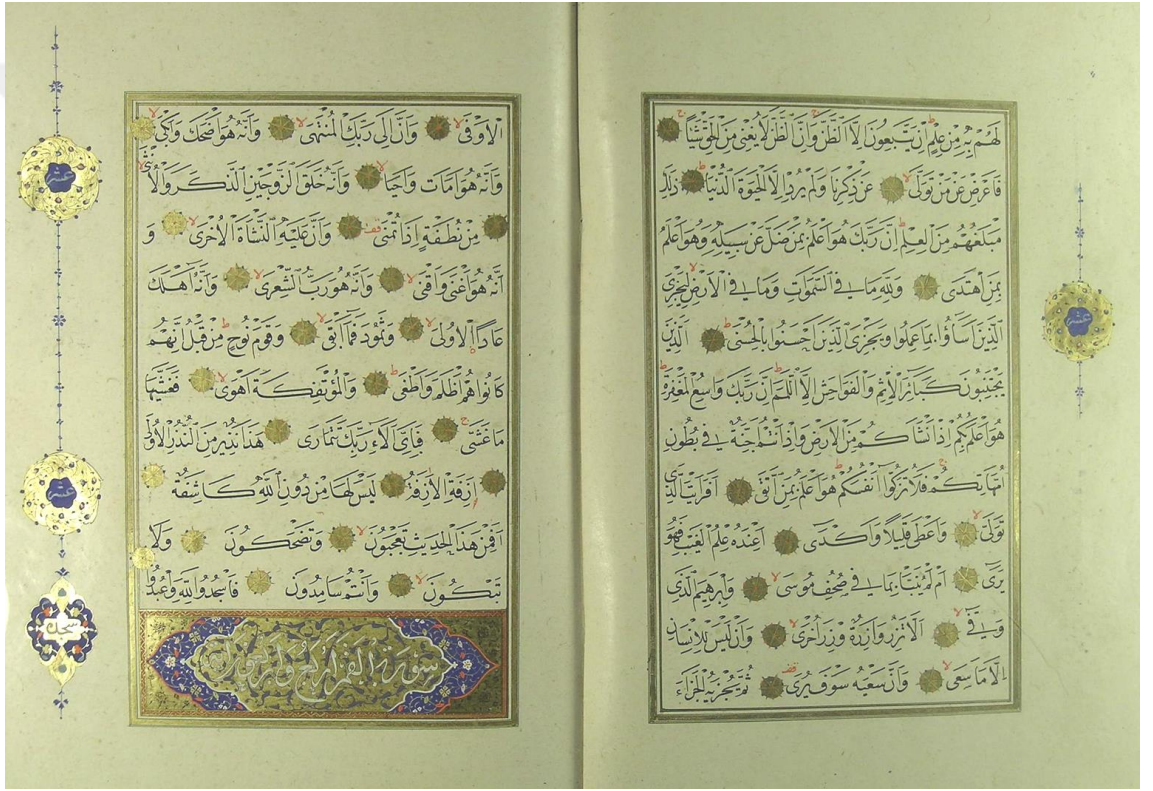 لَهُمْ بِهِ مِنْ عِلْمٍ اِنْ يَتَّبِعُونَ اِلَّا الظَّنَّ وَاِنَّ الظَّنَّ لَا يُغْنِي مِنَ الْحَقِّ شَيْئًا
فَاَعْرِضْ عَنْ مَنْ تَوَلّٰى عَنْ ذِكْرِنَا وَلَمْ يُرِدْ اِلَّا الْحَيٰوةَ الدُّنْيَا ذٰلِكَ
مَبْلَغُهُمْ مِنَ الْعِلْمِ اِنَّ رَبَّكَ هُوَ اَعْلَمُ بِمَنْ ضَلَّ عَنْ سَبِيلِهِ وَهُوَ اَعْلَمُ
بِمَنِ اهْتَدٰى وَلِلّٰهِ مَا فِي السَّمٰوَاتِ وَمَا فِي الْاَرْضِ لِيَجْزِيَ
الَّذِينَ اَسَاؤُا بِمَا عَمِلُوا وَيَجْزِيَ الَّذِينَ اَحْسَنُوا بِالْحُسْنٰى اَلَّذِينَ
يَجْتَنِبُونَ كَبَائِرَ الْاِثْمِ وَالْفَوَاحِشَ اِلَّا اللَّمَمَ اِنَّ رَبَّكَ وَاسِعُ الْمَغْفِرَةِ
هُوَ اَعْلَمُ بِكُمْ اِذْ اَنْشَاَكُمْ مِنَ الْاَرْضِ وَاِذْ اَنْتُمْ اَجِنَّةٌ فِي بُطُونِ
اُمَّهَاتِكُمْ فَلَا تُزَكُّوا اَنْفُسَكُمْ هُوَ اَعْلَمُ بِمَنِ اتَّقٰى اَفَرَاَيْتَ الَّذِي
تَوَلّٰى وَاَعْطٰى قَلِيلًا وَاَكْدٰى اَعِنْدَهُ عِلْمُ الْغَيْبِ فَهُوَ
يَرٰى اَمْ لَمْ يُنَبَّاْ بِمَا فِي صُحُفِ مُوسٰى وَاِبْرٰهِيمَ الَّذِي
وَفّٰى اَلَّا تَزِرُ وَازِرَةٌ وِزْرَ اُخْرٰى وَاَنْ لَيْسَ لِلْاِنْسَانِ
اِلَّا مَا سَعٰى وَاَنَّ سَعْيَهُ سَوْفَ يُرٰى ثُمَّ يُجْزٰيهُ الْجَزَاءَ
عشر
الْاَوْفٰى وَاَنَّ اِلٰى رَبِّكَ الْمُنْتَهٰى وَاَنَّهُ هُوَ اَضْحَكَ وَاَبْكٰى
وَاَنَّهُ هُوَ اَمَاتَ وَاَحْيَا وَاَنَّهُ خَلَقَ الزَّوْجَيْنِ الذَّكَرَ وَالْاُنْثٰى
مِنْ نُطْفَةٍ اِذَا تُمْنٰى وَاَنَّ عَلَيْهِ النَّشْاَةَ الْاُخْرٰى وَ
اَنَّهُ هُوَ اَغْنٰى وَاَقْنٰى وَاَنَّهُ هُوَ رَبُّ الشِّعْرٰى وَاَنَّهُ اَهْلَكَ
عَادًا الْاُولٰى وَثَمُودَ فَمَا اَبْقٰى وَقَوْمَ نُوحٍ مِنْ قَبْلُ اِنَّهُمْ
كَانُوا هُمْ اَظْلَمَ وَاَطْغٰى وَالْمُؤْتَفِكَةَ اَهْوٰى فَغَشّٰيهَا
مَا غَشّٰى فَبِاَيِّ اٰلَاءِ رَبِّكَ تَتَمَارٰى هٰذَا نَذِيرٌ مِنَ النُّذُرِ الْاُولٰى
اَزِفَتِ الْاٰزِفَةُ لَيْسَ لَهَا مِنْ دُونِ اللّٰهِ كَاشِفَةٌ
اَفَمِنْ هٰذَا الْحَدِيثِ تَعْجَبُونَ وَتَضْحَكُونَ وَلَا
تَبْكُونَ وَاَنْتُمْ سَامِدُونَ فَاسْجُدُوا لِلّٰهِ وَاعْبُدُوا
سورة القمر
عشر
عشر
سجدة